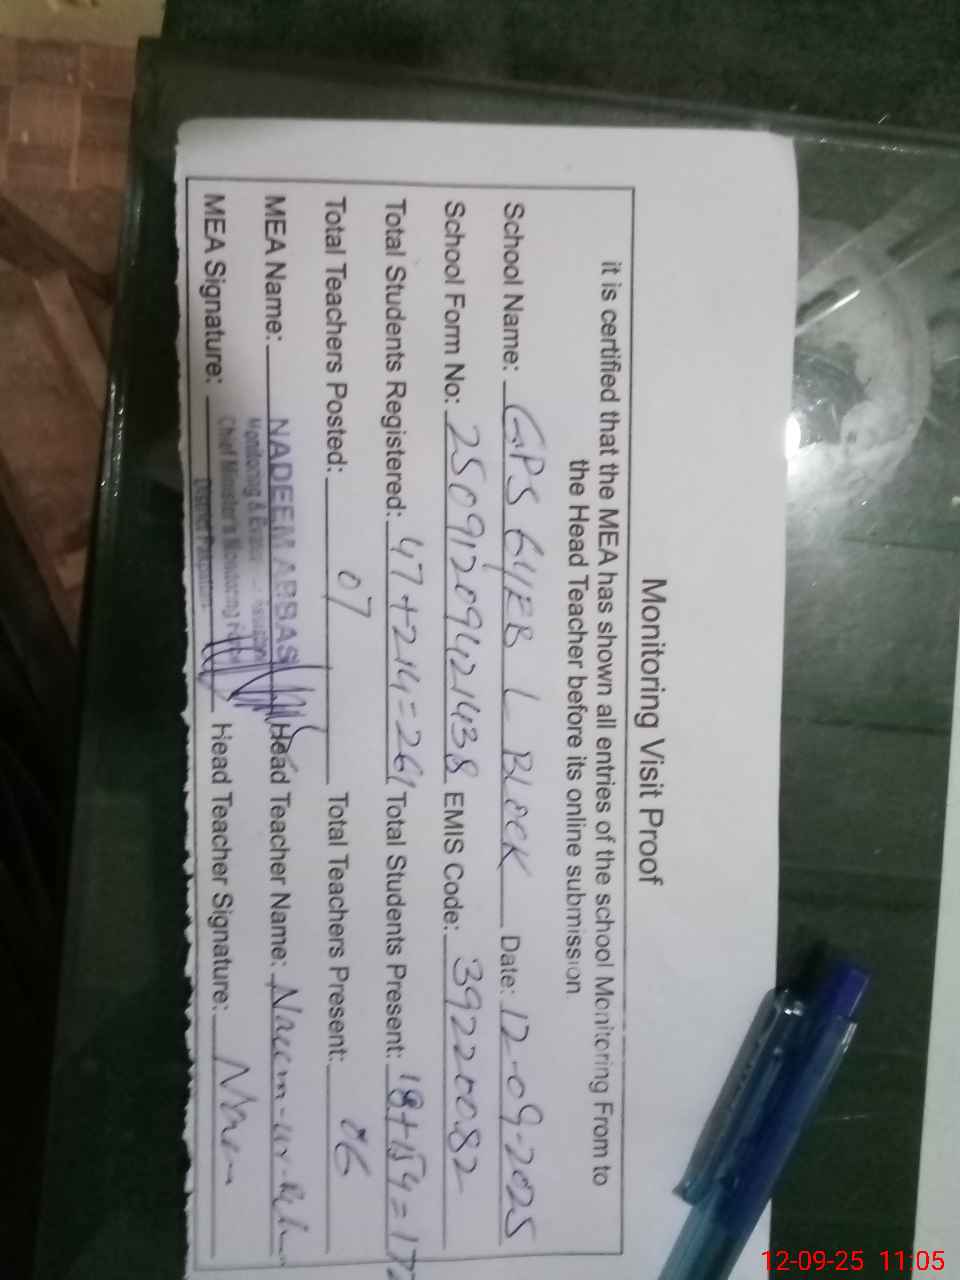 Monitoring Visit Proof
it is certified that the MEA has shown all entries of the school Monitoring From to
the Head Teacher before its online submission
School Name: GPS 64/EB L BLOCK Date: 12-09-2025
School Form No: 25091209421438 EMIS Code: 39220082
Total Students Registered: 47+214=261 Total Students Present: 18+154=172
Total Teachers Posted: 07 Total Teachers Present: 06
MEA Name: NADEEM ABBAS Head Teacher Name: Naeem-ur-
Monitoring &
Chief Minister's Monitoring
MEA Signature: Head Teacher Signature:
District Pakpattan
12-09-25 11:05